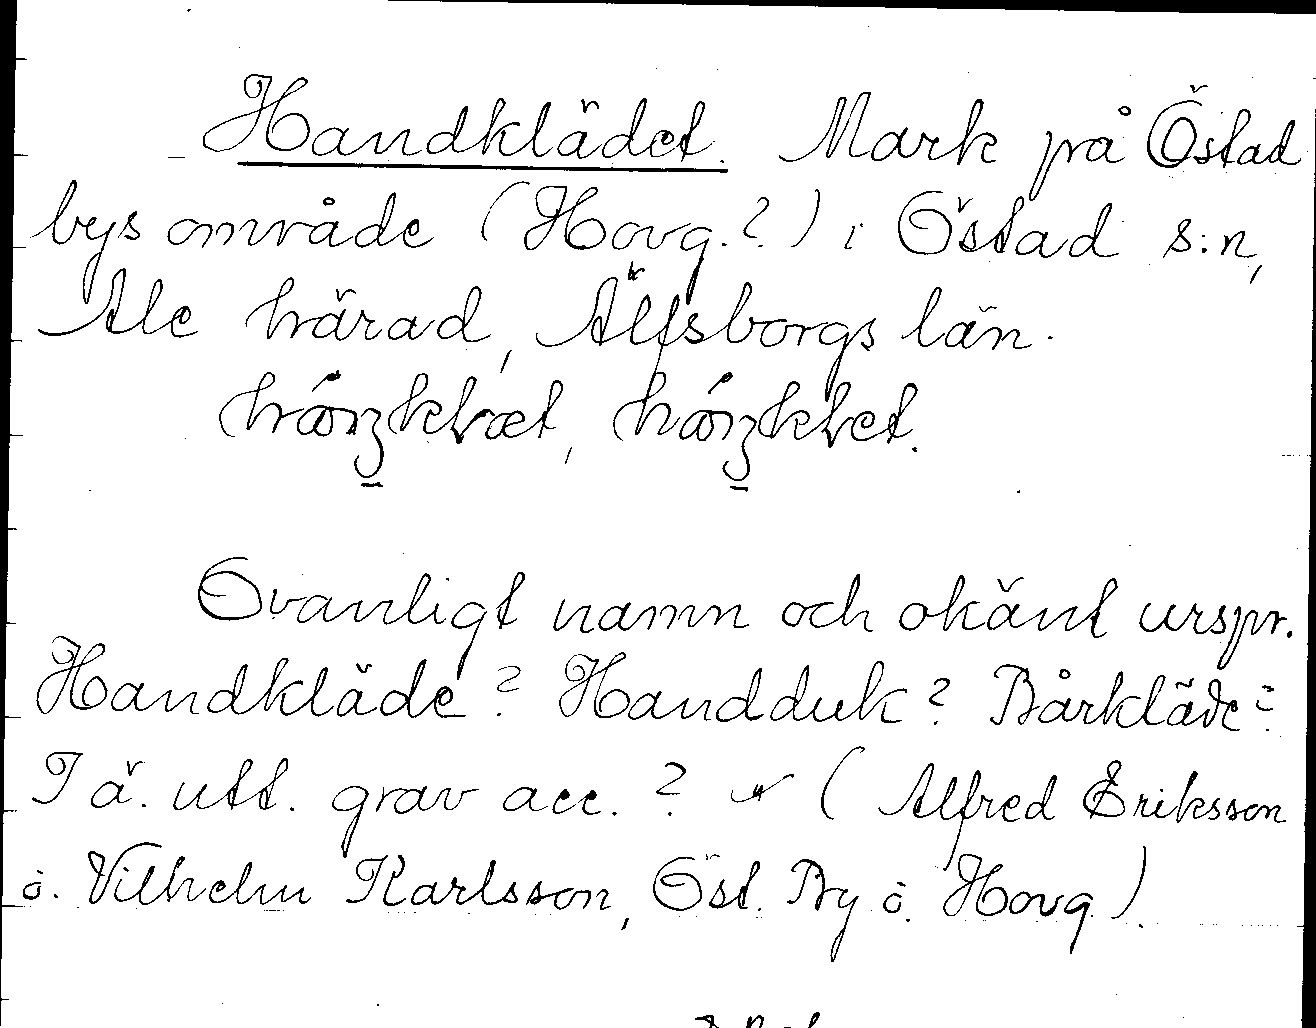 Handklädet. Mark på Östad
bys område (Hovg.?) i Östad s:n,
Ale härad, Älfsborgs län.
Ovanligt namn och okänt urspr.
Handkläde? Handduk? Bårkläde?
I ä. utt. grav acc.? (Alfred Eriksson
o. Vilhelm Karlsson, Öst. By o. Hovg)